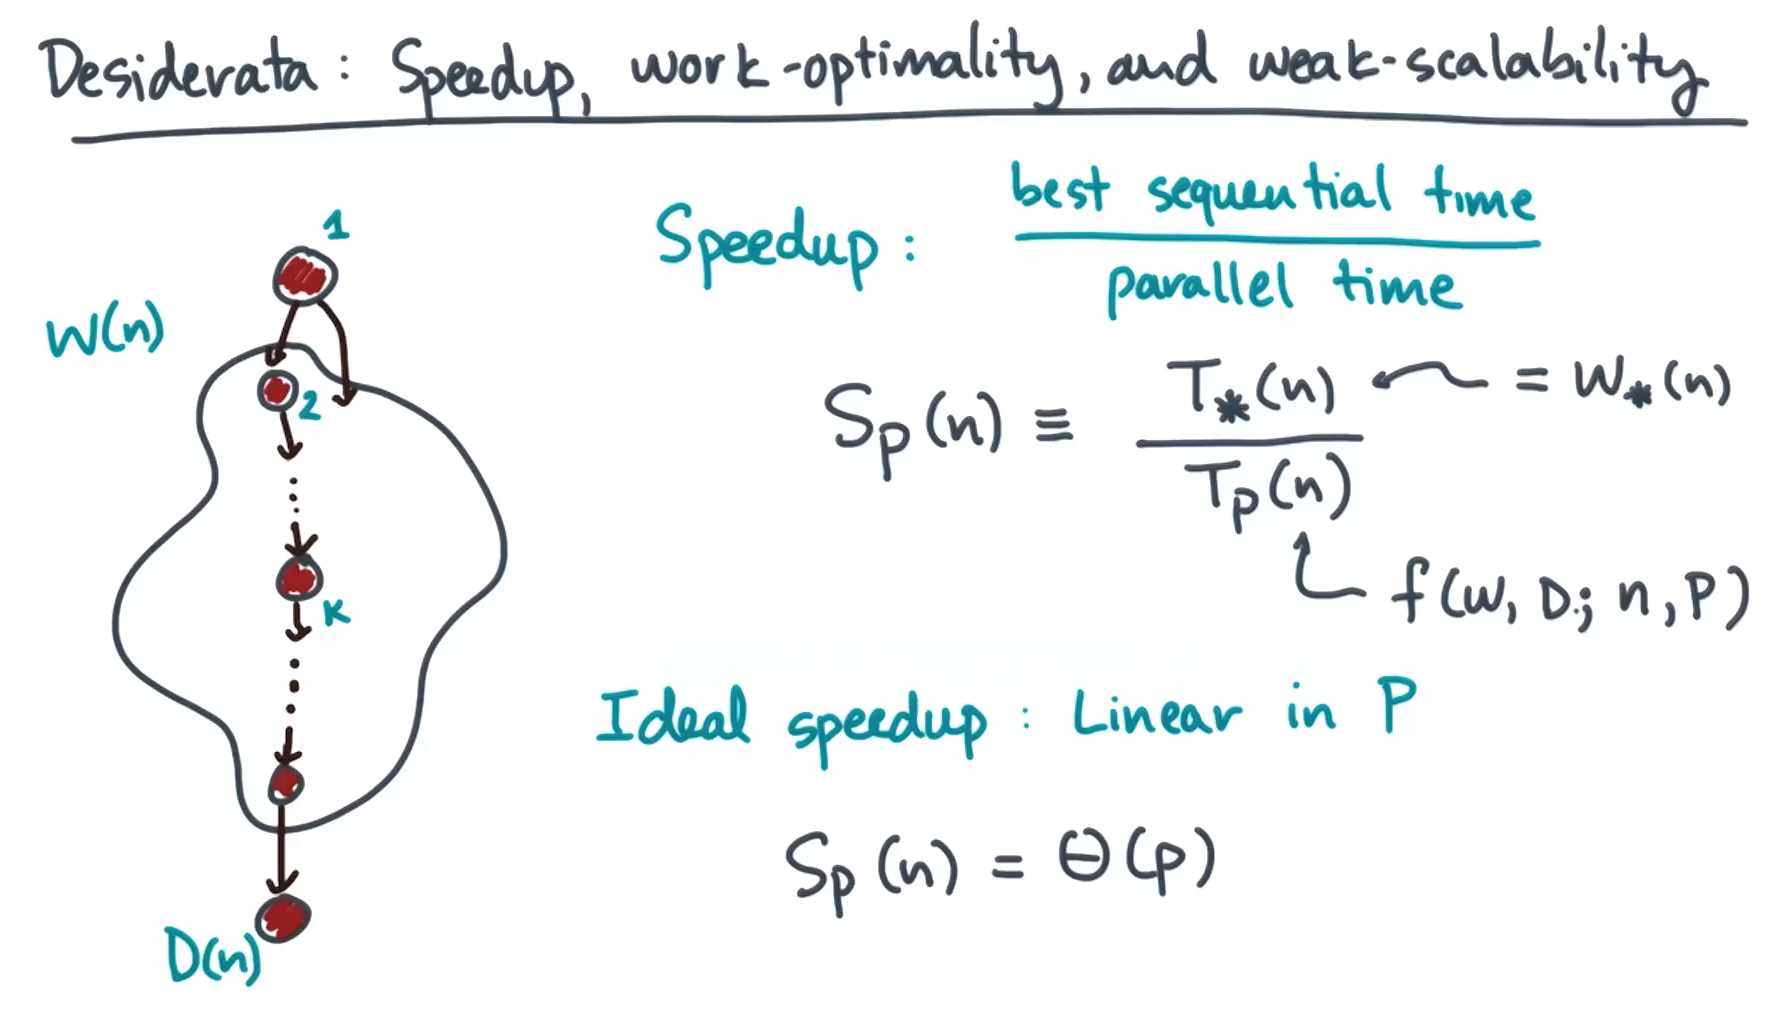 Desiderata: Speedup, work-optimality, and weak-scalability
1
W(n)
2
K
D(n)
Speedup: best sequential time
parallel time
Sₚ(n) ≡ T*(n) = W*(n)
Tₚ(n)
f(W, D; n, P)
Ideal speedup: Linear in P
Sₚ(n) = Θ(p)